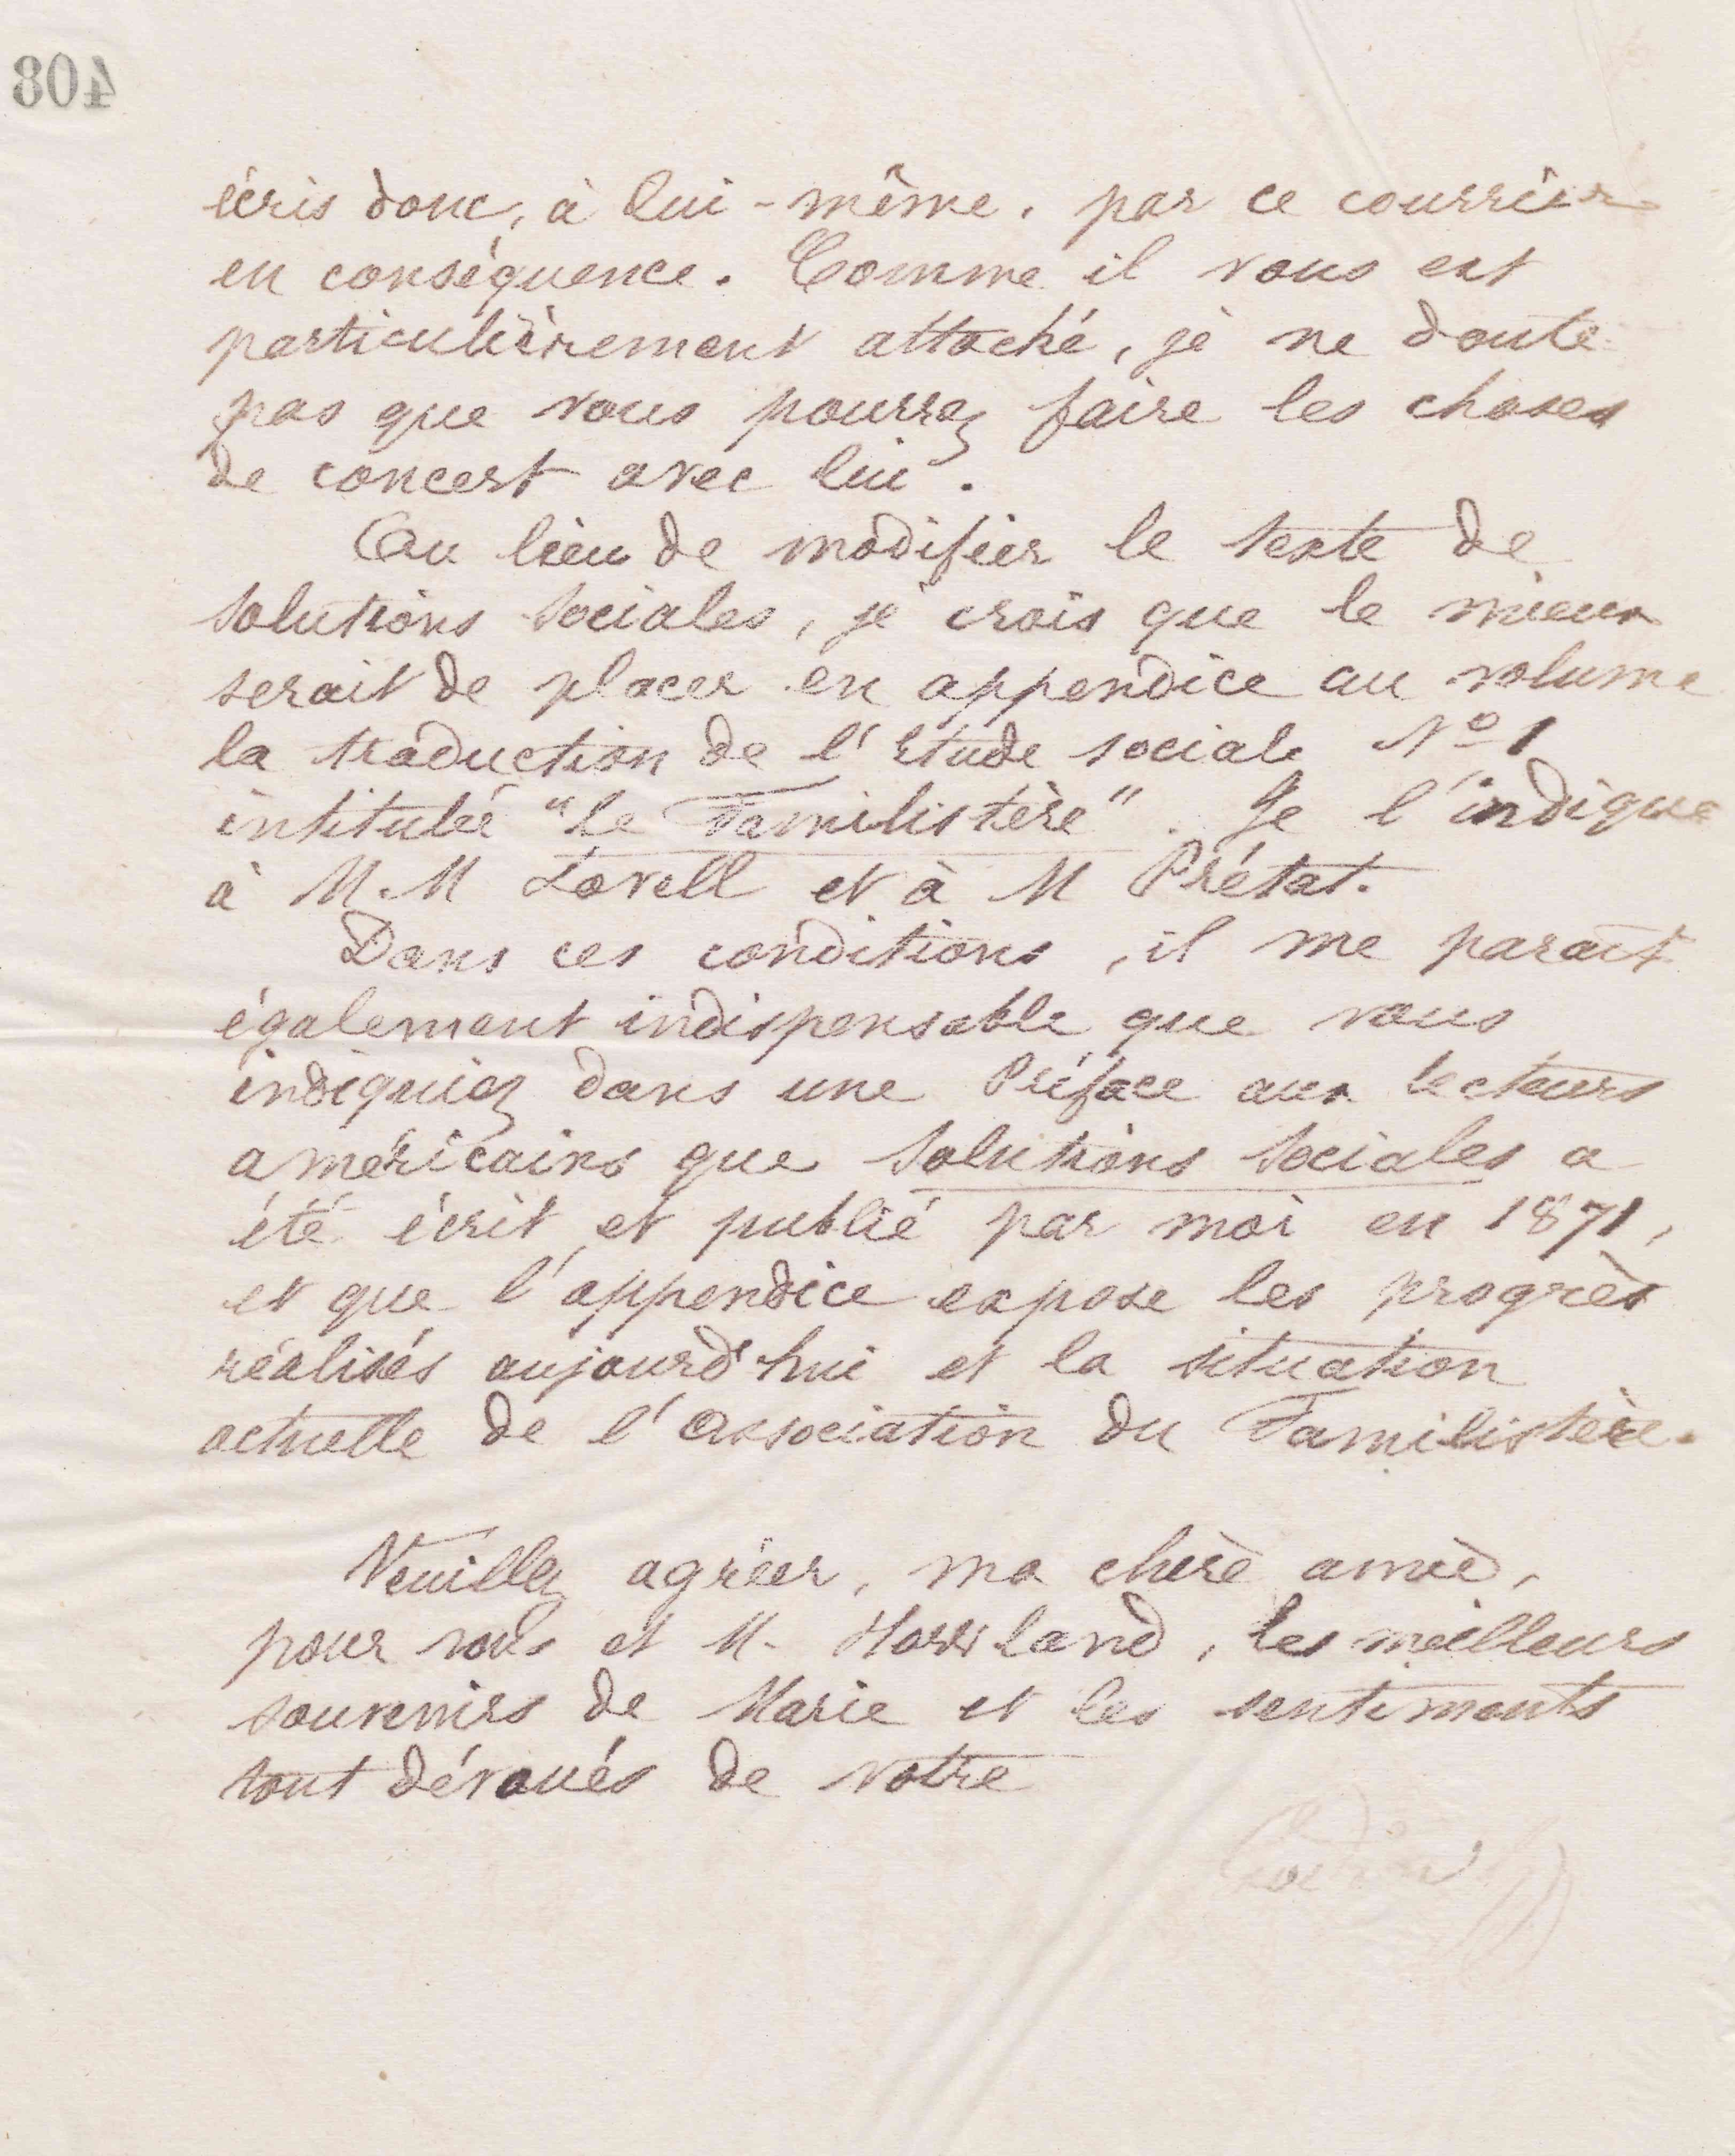 408
écris donc, à lui-même, par ce courrier
en conséquence. Comme il vous est
particulièrement attaché, je ne doute
pas que vous pourrez faire les choses
de concert avec lui.
Au lieu de modifier le texte de
Solutions Sociales, je crois que le mieux
serait de placer en appendice au volume
la traduction de l'étude sociale No 1
intitulée "Le Familistère". Je l'indique
à M.M Lovell et à M Prétat.
Dans ces conditions, il me parait
également indispensable que vous
indiquiez dans une Préface aux lecteurs
américains que Solutions Sociales a
été écrit et publié par moi en 1871,
et que l'appendice expose les progrès
réalisés aujourd'hui et la situation
actuelle de l'Association du Familistère.
Veuillez agréer, ma chère amie,
pour vous et M. Howland, les meilleurs
souvenirs de Marie et les sentiments
tout dévoués de votre
Godin